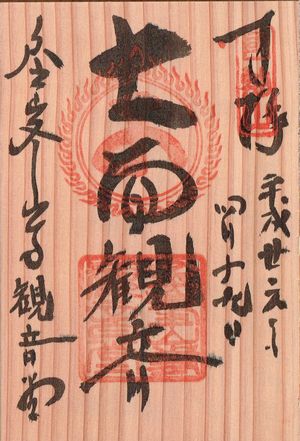 奉拝
平成廿年
四月十九日
十一面観音
金峯山寺観音堂